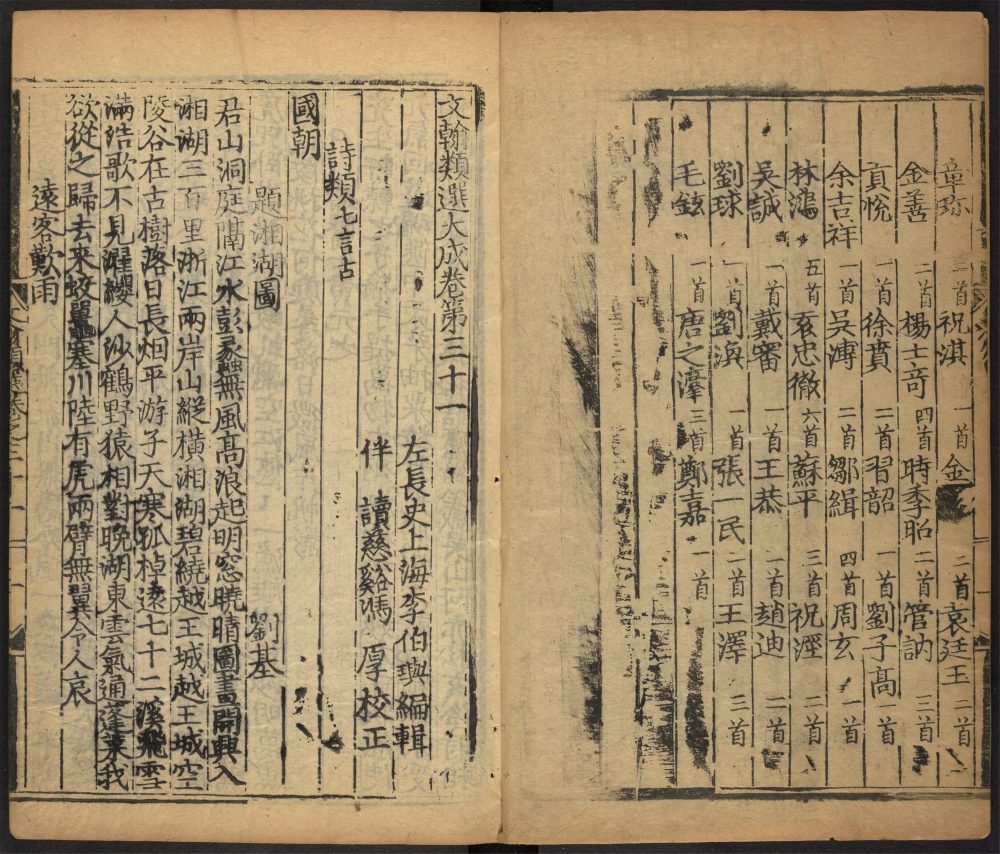 章 二首 祝淇 一首 金 二首 袁廷玉 二首
金善 二首 楊士奇 四首 時季昭 二首 管訥 三首
貢悅 一首 徐賁 二首 習韶 一首 劉子高 一首
余吉祥 一首 吳溥 二首 鄒緝 四首 周玄 一首
林鴻 五首 袁忠徹 六首 蘇平 三首 祝
吳誠 一首 戴審 一首 王恭 一首 趙迪 二首
劉球 一首 劉 一首 張一民 二首 王澤 三首
毛鉉 一首 唐之淳 三首 鄭嘉 一首
文翰類選大成卷第三十一
左長史上海李伯璵編輯
伴讀慈谿馮厚校正
詩類七言古
國朝
題湘湖圖 劉基
君山洞庭隔江水彭蠡無風高浪起明窓曉晴圖畫開興入
湘湖三百里浙江兩岸山縱橫湘湖碧繞越王城越王城空
陵谷在古樹落日長烟平游子天寒孤棹遠七十二溪飛雪
滿浩歌不見濯纓人沙鶴野猿相對晚湖東雲氣通蓬萊我
欲從之歸去來蛟鼉塞川陸有虎兩臂無翼令人哀
遠客歎雨